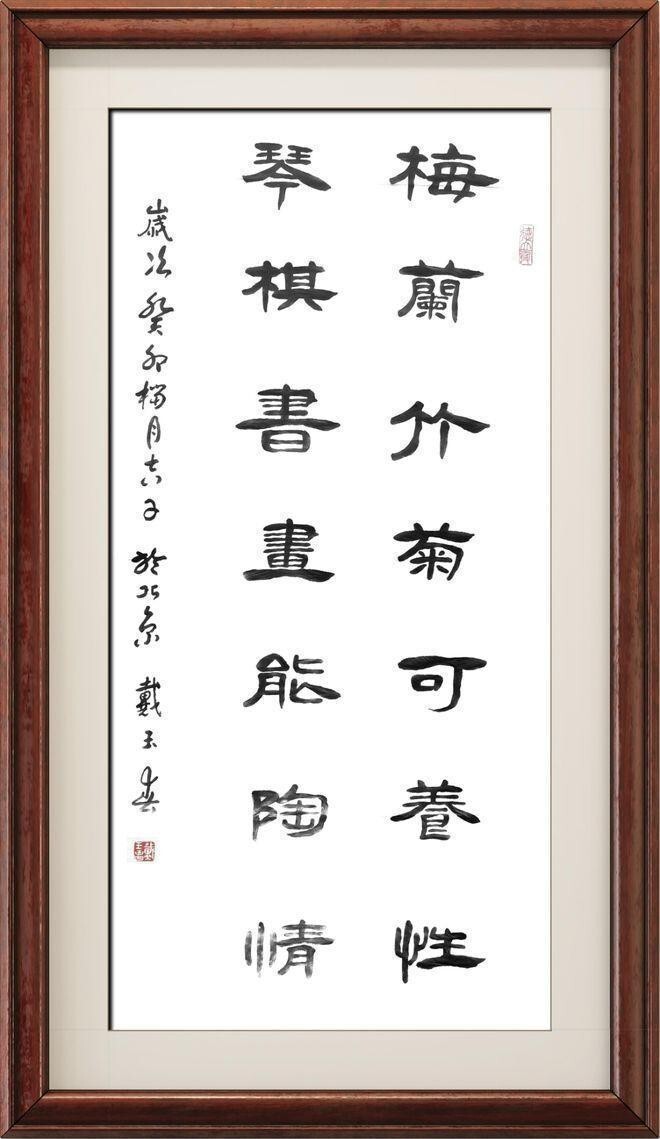 梅蘭竹菊可養性
琴棋書畫能陶情
歲次癸卯榴月吉日於北京 戴玉春